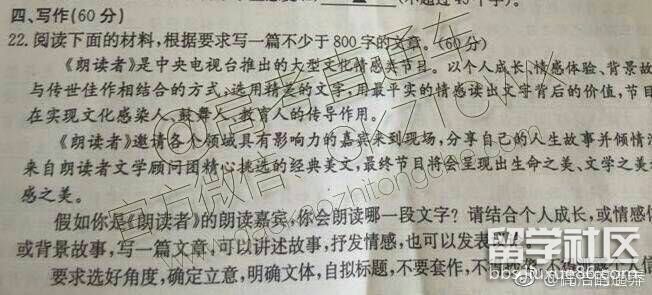 (不超过45个字)。
四、写作(60分)
22. 阅读下面的材料,根据要求写一篇不少于800字的文章。(60分)
《朗读者》是中央电视台推出的大型文化情感类节目。以个人成长、情感体验、背景故
与传世佳作相结合的方式,选用精美的文字,用最平实的情感读出文字背后的价值,节目
在实现文化感染人、鼓舞人、教育人的传导作用。
《朗读者》邀请各个领域具有影响力的嘉宾来到现场,分享自己的人生故事并倾情
来自朗读者文学顾问团精心挑选的经典美文,最终节目将会呈现出生命之美、文学之美
感之美。
假如你是《朗读者》的朗读嘉宾,你会朗读哪一段文字?请结合个人成长,或情感
或背景故事,写一篇文章,可以讲述故事,抒发情感,也可以发表
要求选好角度,确定立意,明确文体,自拟标题,不要套作,不得
留学社区
bbs.liuxue86.com